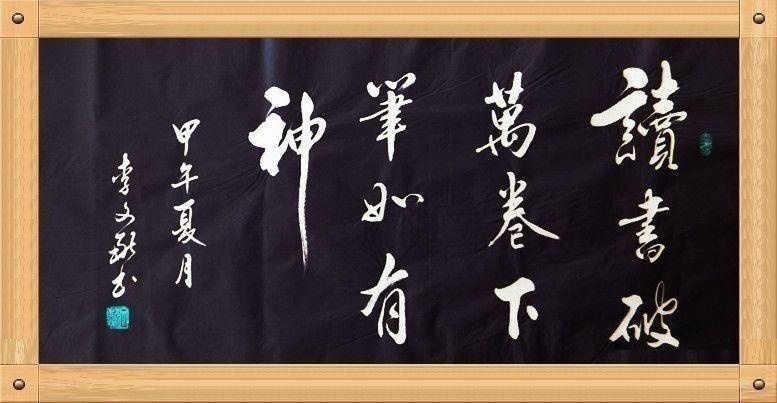 讀書破
萬卷下
筆如有
神
甲午夏月
李文